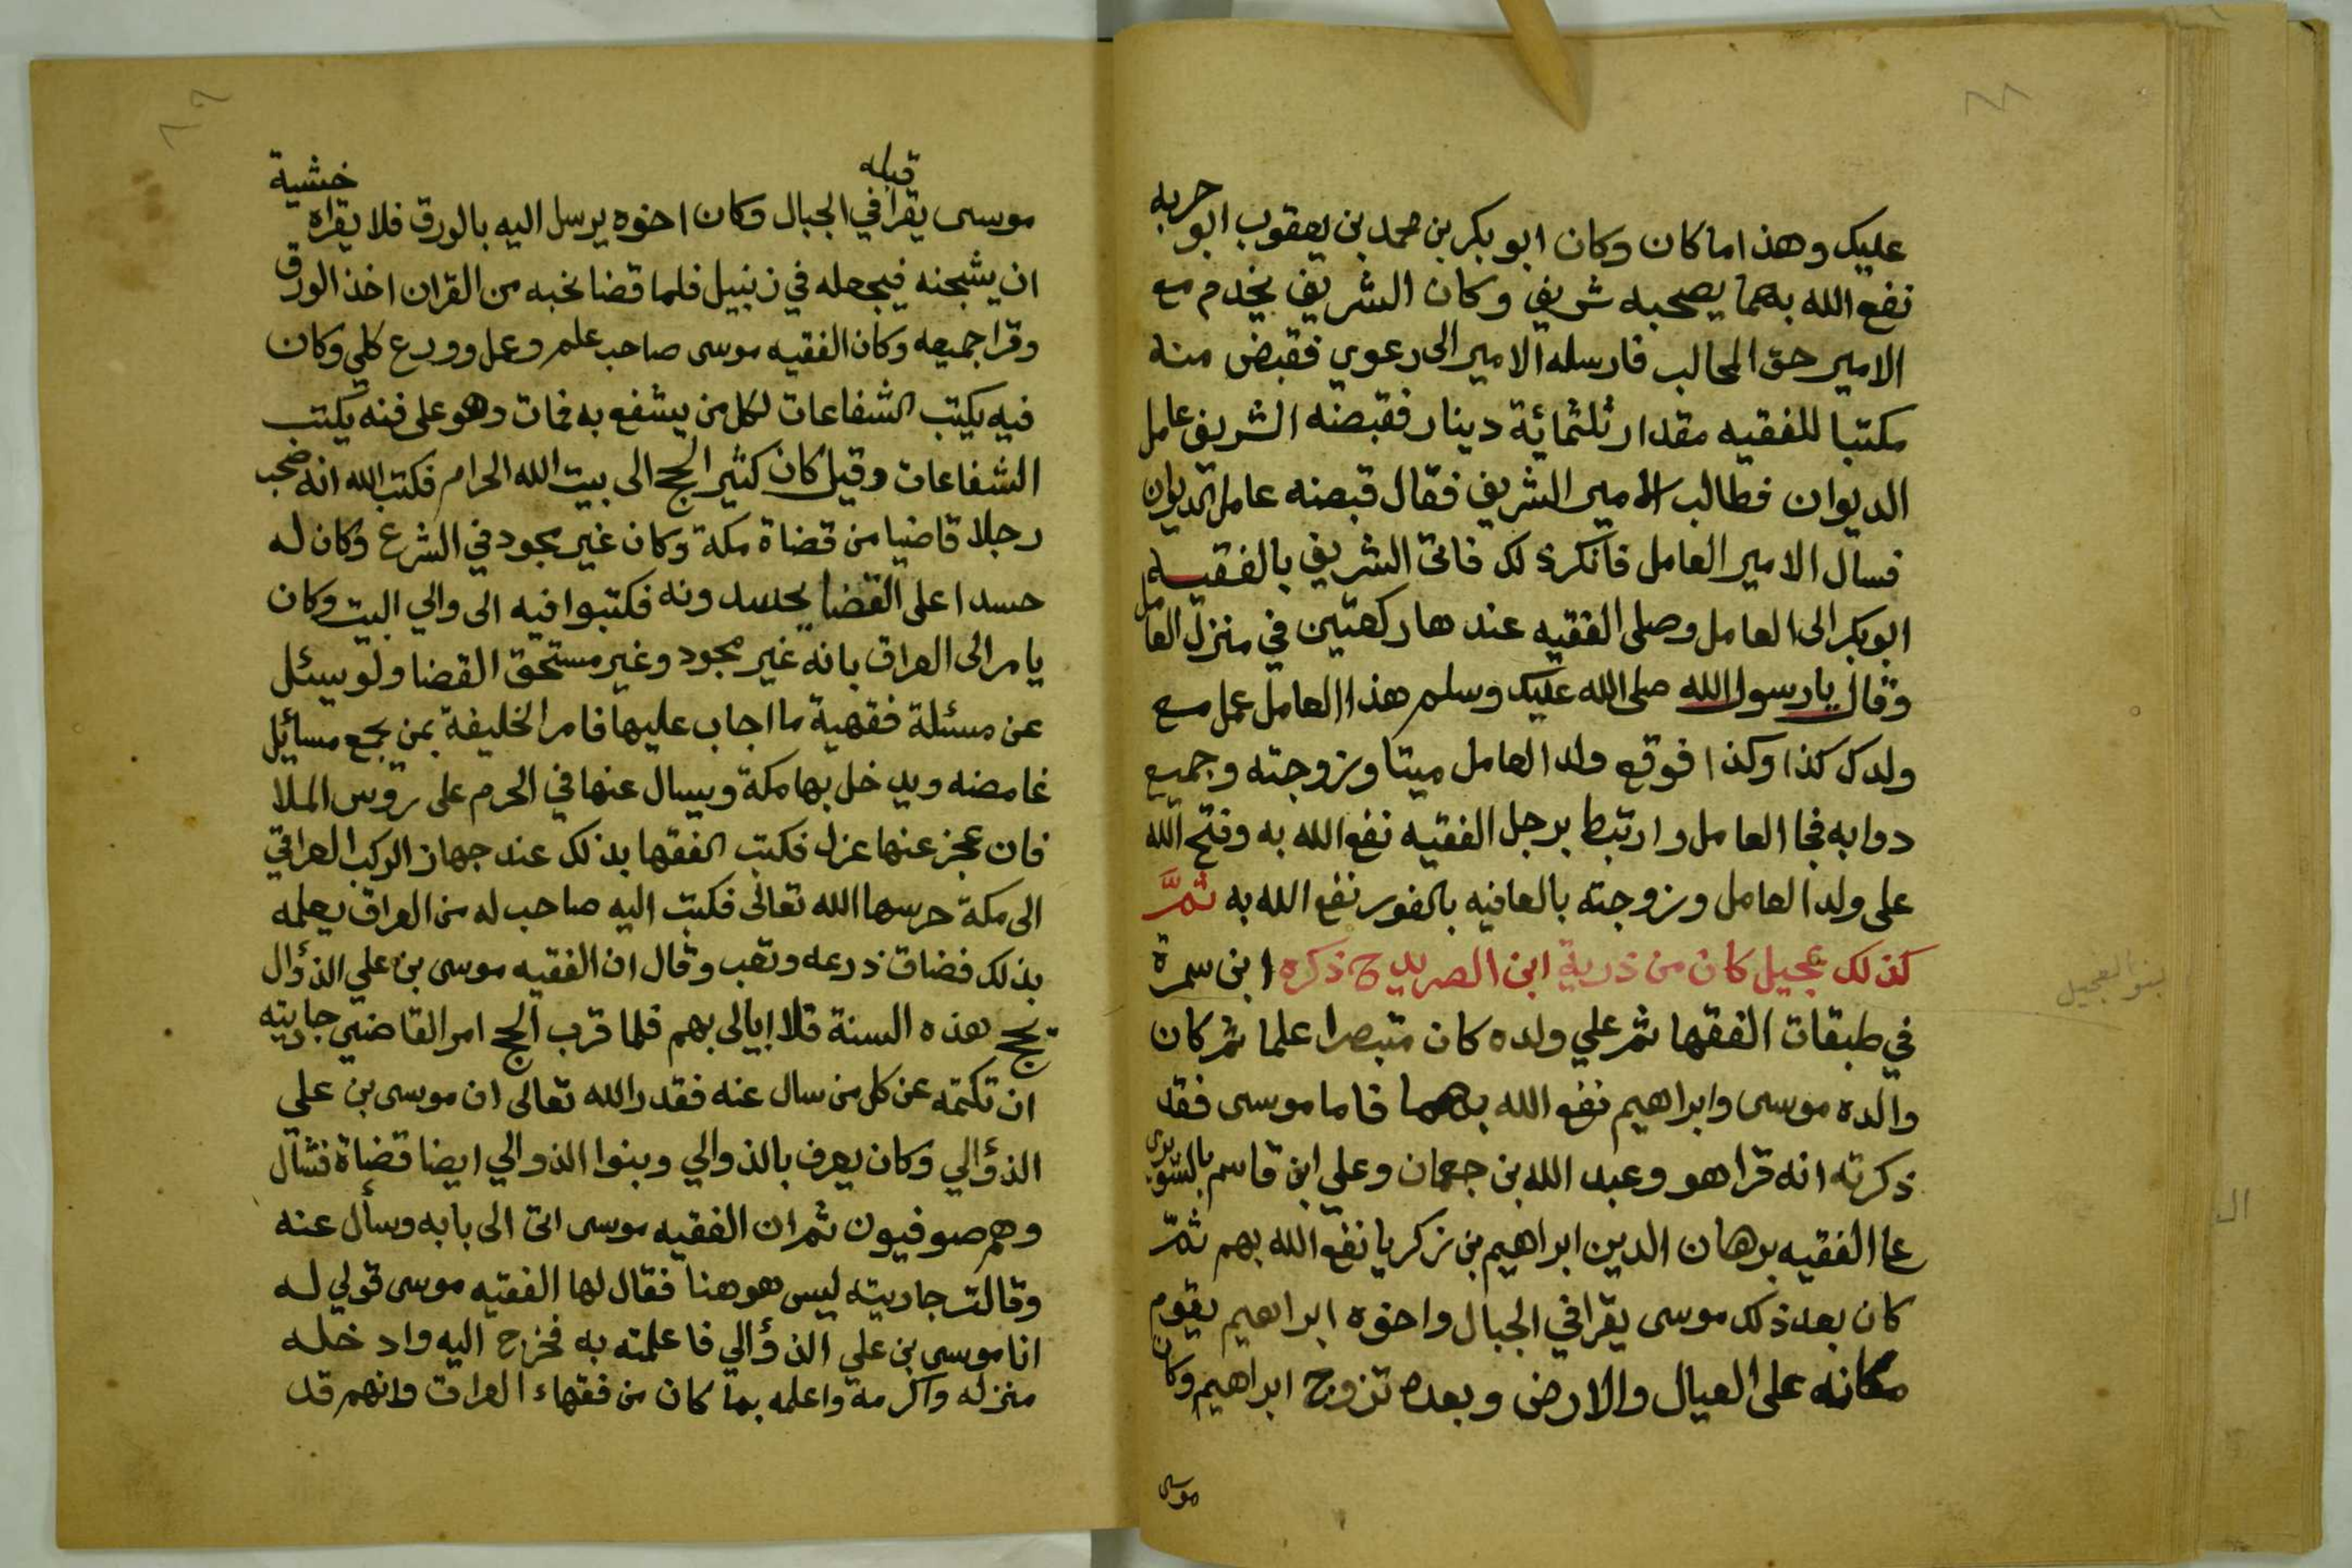 عليك وهذا ما كان وكان ابو بكر بن محمد بن يعقوب ابو حربه
نفع الله بهما يصحبه شريف وكان الشريف يخدم مع
الامير حق المحالب فارسله الامير الى رعوي فقبض منه
مكتبا للفقيه مقدار ثلثمائة دينار فقبضه الشريف عامل
الديوان فطالب الامير الشريف فقال قبضه عامل الديوان
فسال الامير العامل فانكر ذلك فاتى الشريف بالفقيه
ابو بكر الى العامل وصلى الفقيه عندها ركعتين في منزل العامل
وقال يا رسول الله صلى الله عليك وسلم هذا العامل عمل مع
ولدك كذا وكذا فوقع ولد العامل ميتا وزوجته وجميع
دوابه فجا العامل وارتبط برجل الفقيه نفع الله به وفتح الله
على ولد العامل وزوجته بالعافيه بالفور نفع الله به ثمَّ
كذلك عجيل كان من ذرية ابن الصريدح ذكره ابن سمرة
في طبقات الفقها ثم علي ولده كان متبصرا علما ثم كان
والده موسى وابراهيم نفع الله بهما فاما موسى فقد
ذكرته انه قرا هو وعبد الله بن جعمان وعلي ابن قاسم بالشويرى
عا الفقيه برهان الدين ابراهيم بن زكريا نفع الله بهم ثمّ
كان بعد ذلك موسى يقرا في الجبال واخوه ابراهيم يقوم
مكانه على العيال والارض وبعده تزوج ابراهيم وكان
موسى
بنو العجيل
موسى يقرا في الجبال وكان اخوه يرسل اليه بالورق فلا يقراه قبله خشية
ان يشجنه فيجعله في زنبيل فلما قضا نحبه من القران اخذ الورق
وقرا جميعه وكان الفقيه موسى صاحب علم وعمل وورع كلي وكان
فيه يكتب الشفاعات لكل من يشفع به فمات وهو على فنه يكتب
الشفاعات وقيل كان كثير الحج الى بيت الله الحرام فكتب الله انه صحب
رجلا قاضيا من قضاة مكة وكان غير مجود في الشرع وكان له
حسدا على القضا يحسدونه فكتبوا فيه الى والي البيت وكان
يامر الى العراق بانه غير مجود وغير مستحق القضا ولو سئل
عن مسئلة فقهية ما اجاب عليها فامر الخليفة بمن يجمع مسائل
غامضه ويدخل بها مكة ويسال عنها في الحرم على روس الملا
فان عجز عنها عزل فكتب الفقها بذلك عند جهاز الركب العراقي
الى مكة حرسها الله تعالى فكتب اليه صاحب له من العراق يعلمه
بذلك فضاق ذرعه وتعب وقال ان الفقيه موسى بن علي الذؤال
يحج هذه السنة فلا ابالى بهم فلما قرب الحج امر القاضي جاريته
ان تكتمه عن كل من سال عنه فقدر الله تعالى ان موسى بن علي
الذؤالي وكان يعرف بالذوالي وبنوا الذوالي ايضا قضاة فشال
وهم صوفيون ثم ان الفقيه موسى اتى الى بابه وسأل عنه
وقالت جاريته ليس هو هنا فقال لها الفقيه موسى قولي له
انا موسى بن علي الذؤالي فاعلمته به فخرج اليه وادخله
منزله واكرمه واعلمه بما كان من فقهاء العراق وانهم قد